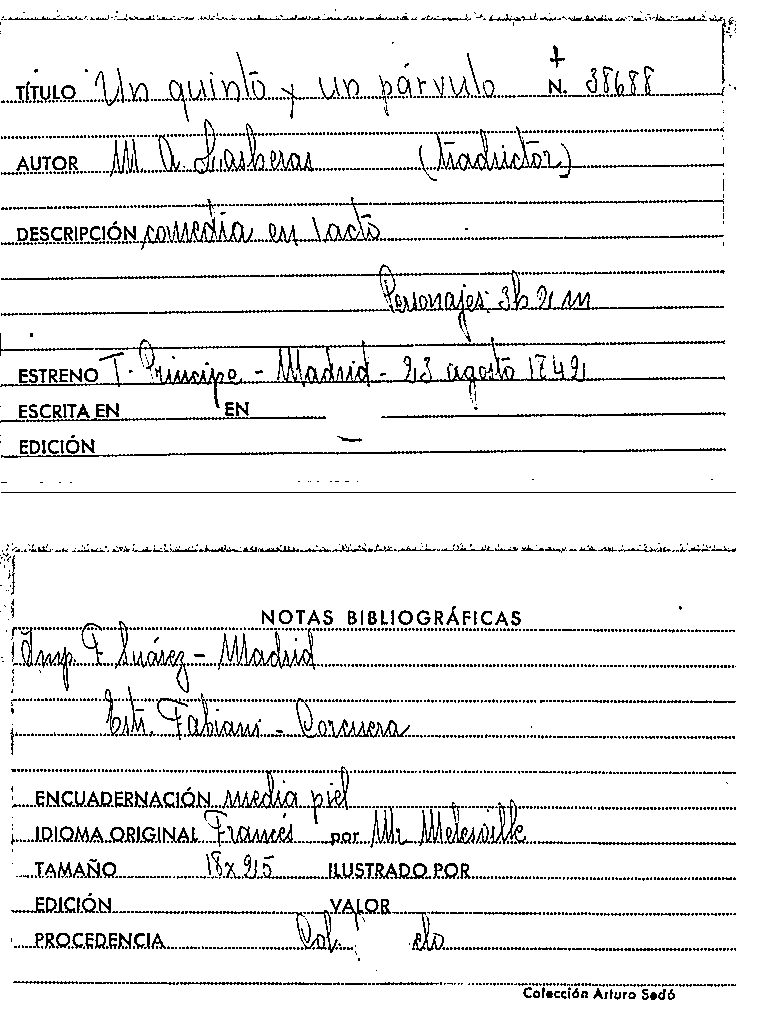 TÍTULO Un quinto y un párvulo N. 38688
AUTOR M. A. Lasheras (traductor)
DESCRIPCIÓN comedia en 1 acto
Personajes: 3h 2 m
ESTRENO T. Principe - Madrid - 23 agosto 1842
ESCRITA EN EN
EDICIÓN —
NOTAS BIBLIOGRÁFICAS
Imp. F Suárez - Madrid
Estr. Fabiani - Corcuera
ENCUADERNACIÓN media piel
IDIOMA ORIGINAL Francés por Mr Melesville
TAMAÑO 18x25 ILUSTRADO POR
EDICIÓN VALOR
PROCEDENCIA Col.
Colección Arturo Sedó